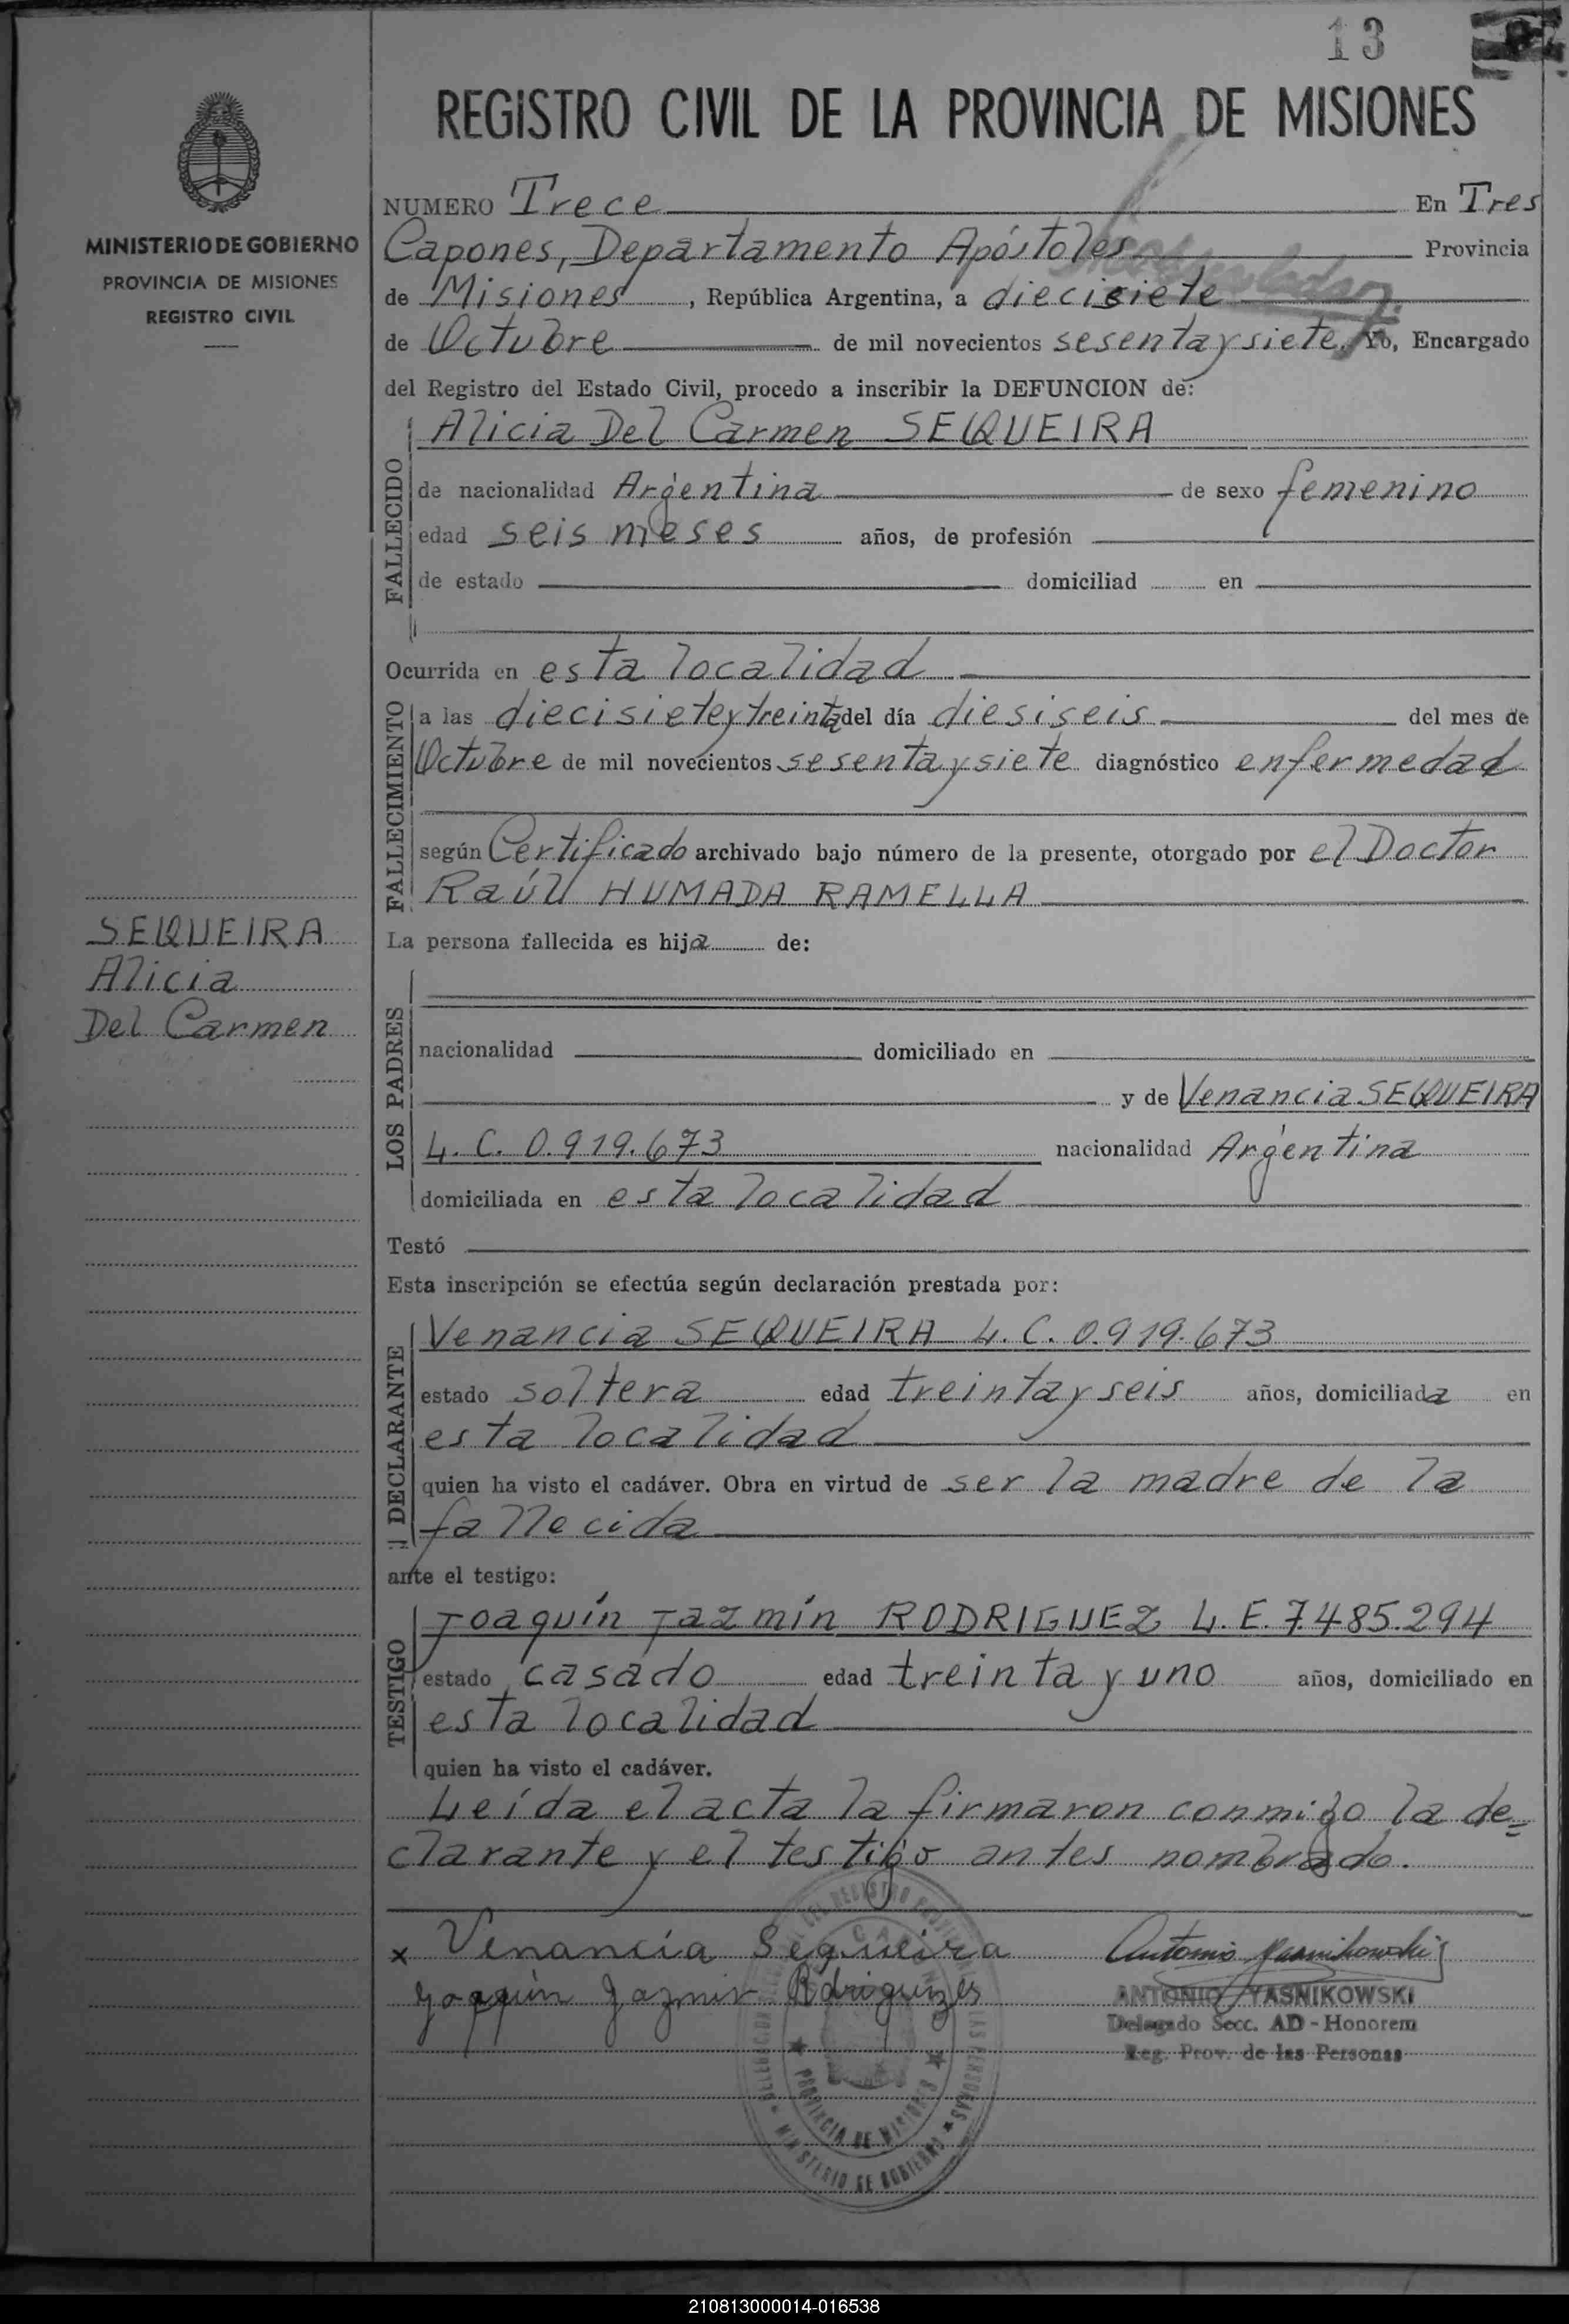 13
REGISTRO CIVIL DE LA PROVINCIA DE MISIONES
MINISTERIO DE GOBIERNO
PROVINCIA DE MISIONES
REGISTRO CIVIL
NUMERO Trece En Tres
Capones, Departamento Apóstoles Provincia
de Misiones, República Argentina, a diecisiete
de Octubre de mil novecientos sesenta y siete. Yo, Encargado
del Registro del Estado Civil, procedo a inscribir la DEFUNCION de:
FALLECIDO
Alicia Del Carmen SEQUEIRA
de nacionalidad Argentina de sexo femenino
edad seis meses años, de profesión
de estado domiciliad en
Ocurrida en esta localidad
FALLECIMIENTO
a las diecisiete y treinta del día diesiseis del mes de
Octubre de mil novecientos sesenta y siete diagnóstico enfermedad
según Certificado archivado bajo número de la presente, otorgado por el Doctor
Raúl HUMADA RAMELLA
SEQUEIRA
Alicia
Del Carmen
La persona fallecida es hija de:
LOS PADRES
nacionalidad domiciliado en
y de Venancia SEQUEIRA
L. C. 0.919.673 nacionalidad Argentina
domiciliada en esta localidad
Testó
Esta inscripción se efectúa según declaración prestada por:
DECLARANTE
Venancia SEQUEIRA L. C. 0.919.673
estado soltera edad treinta y seis años, domiciliada en
esta localidad
quien ha visto el cadáver. Obra en virtud de ser la madre de la
fallecida
ante el testigo:
TESTIGO
Joaquín Jazmín RODRIGUEZ L. E. 7.485.294
estado casado edad treinta y uno años, domiciliado en
esta localidad
quien ha visto el cadáver.
Leída el acta la firmaron conmigo la de=
clarante y el testigo antes nombrado.
x Venancia Sequeira Antonio Yasnikowski
Joaquin Jazmin Rodriguez
ANTONIO YASNIKOWSKI
Delegado Secc. AD - Honorem
Reg. Prov. de las Personas
PROVINCIA DE MISIONES
MINISTERIO DE GOBIERNO
210813000014-016538